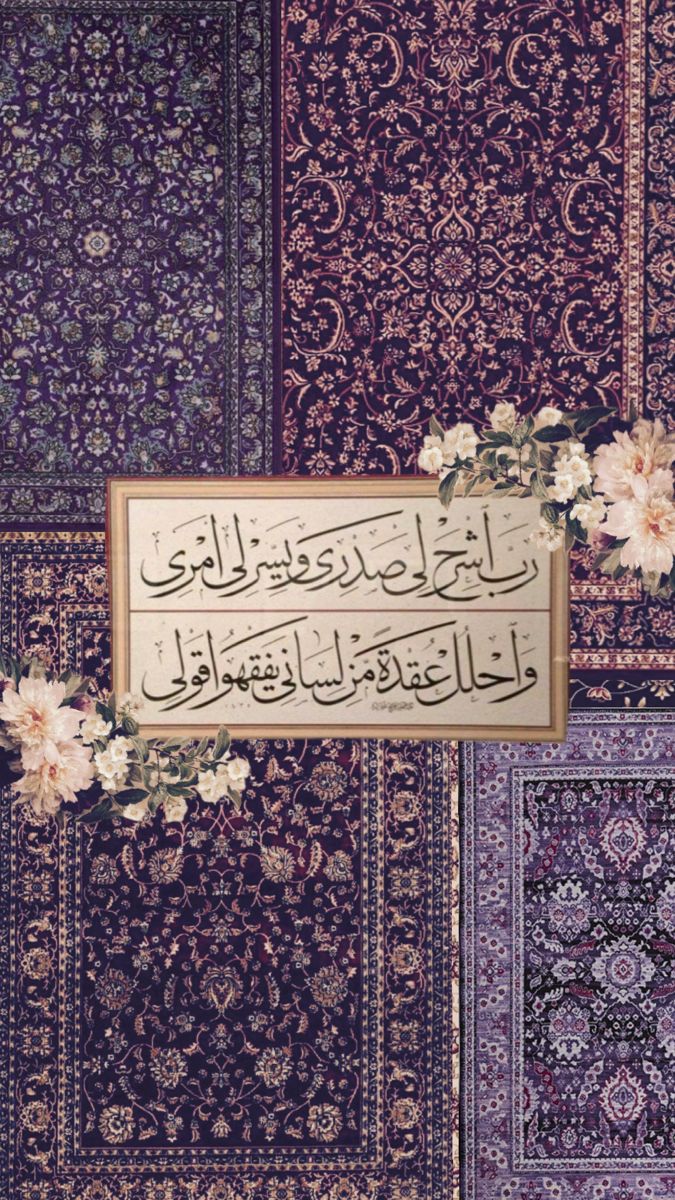 رَبِّ ٱشْرَحْ لِى صَدْرِى وَيَسِّرْ لِىٓ أَمْرِى
وَٱحْلُلْ عُقْدَةً مِّن لِّسَانِى يَفْقَهُوا۟ قَوْلِى